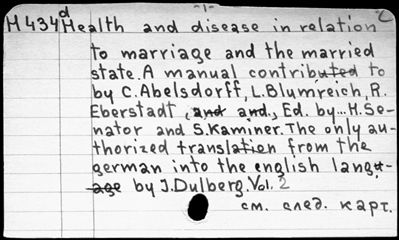 -1-
M434d Health and disease in relation
to marriage and the married
state. A manual contributed to
by C. Abelsdorff, L. Blumreich, R.
Eberstadt, and and., Ed. by... H. Se-
nator and S. Kaminer. The only au-
thorized translation from the
german into the english langu-
age by J. Dulberg. Vol. 2
см. след. карт.